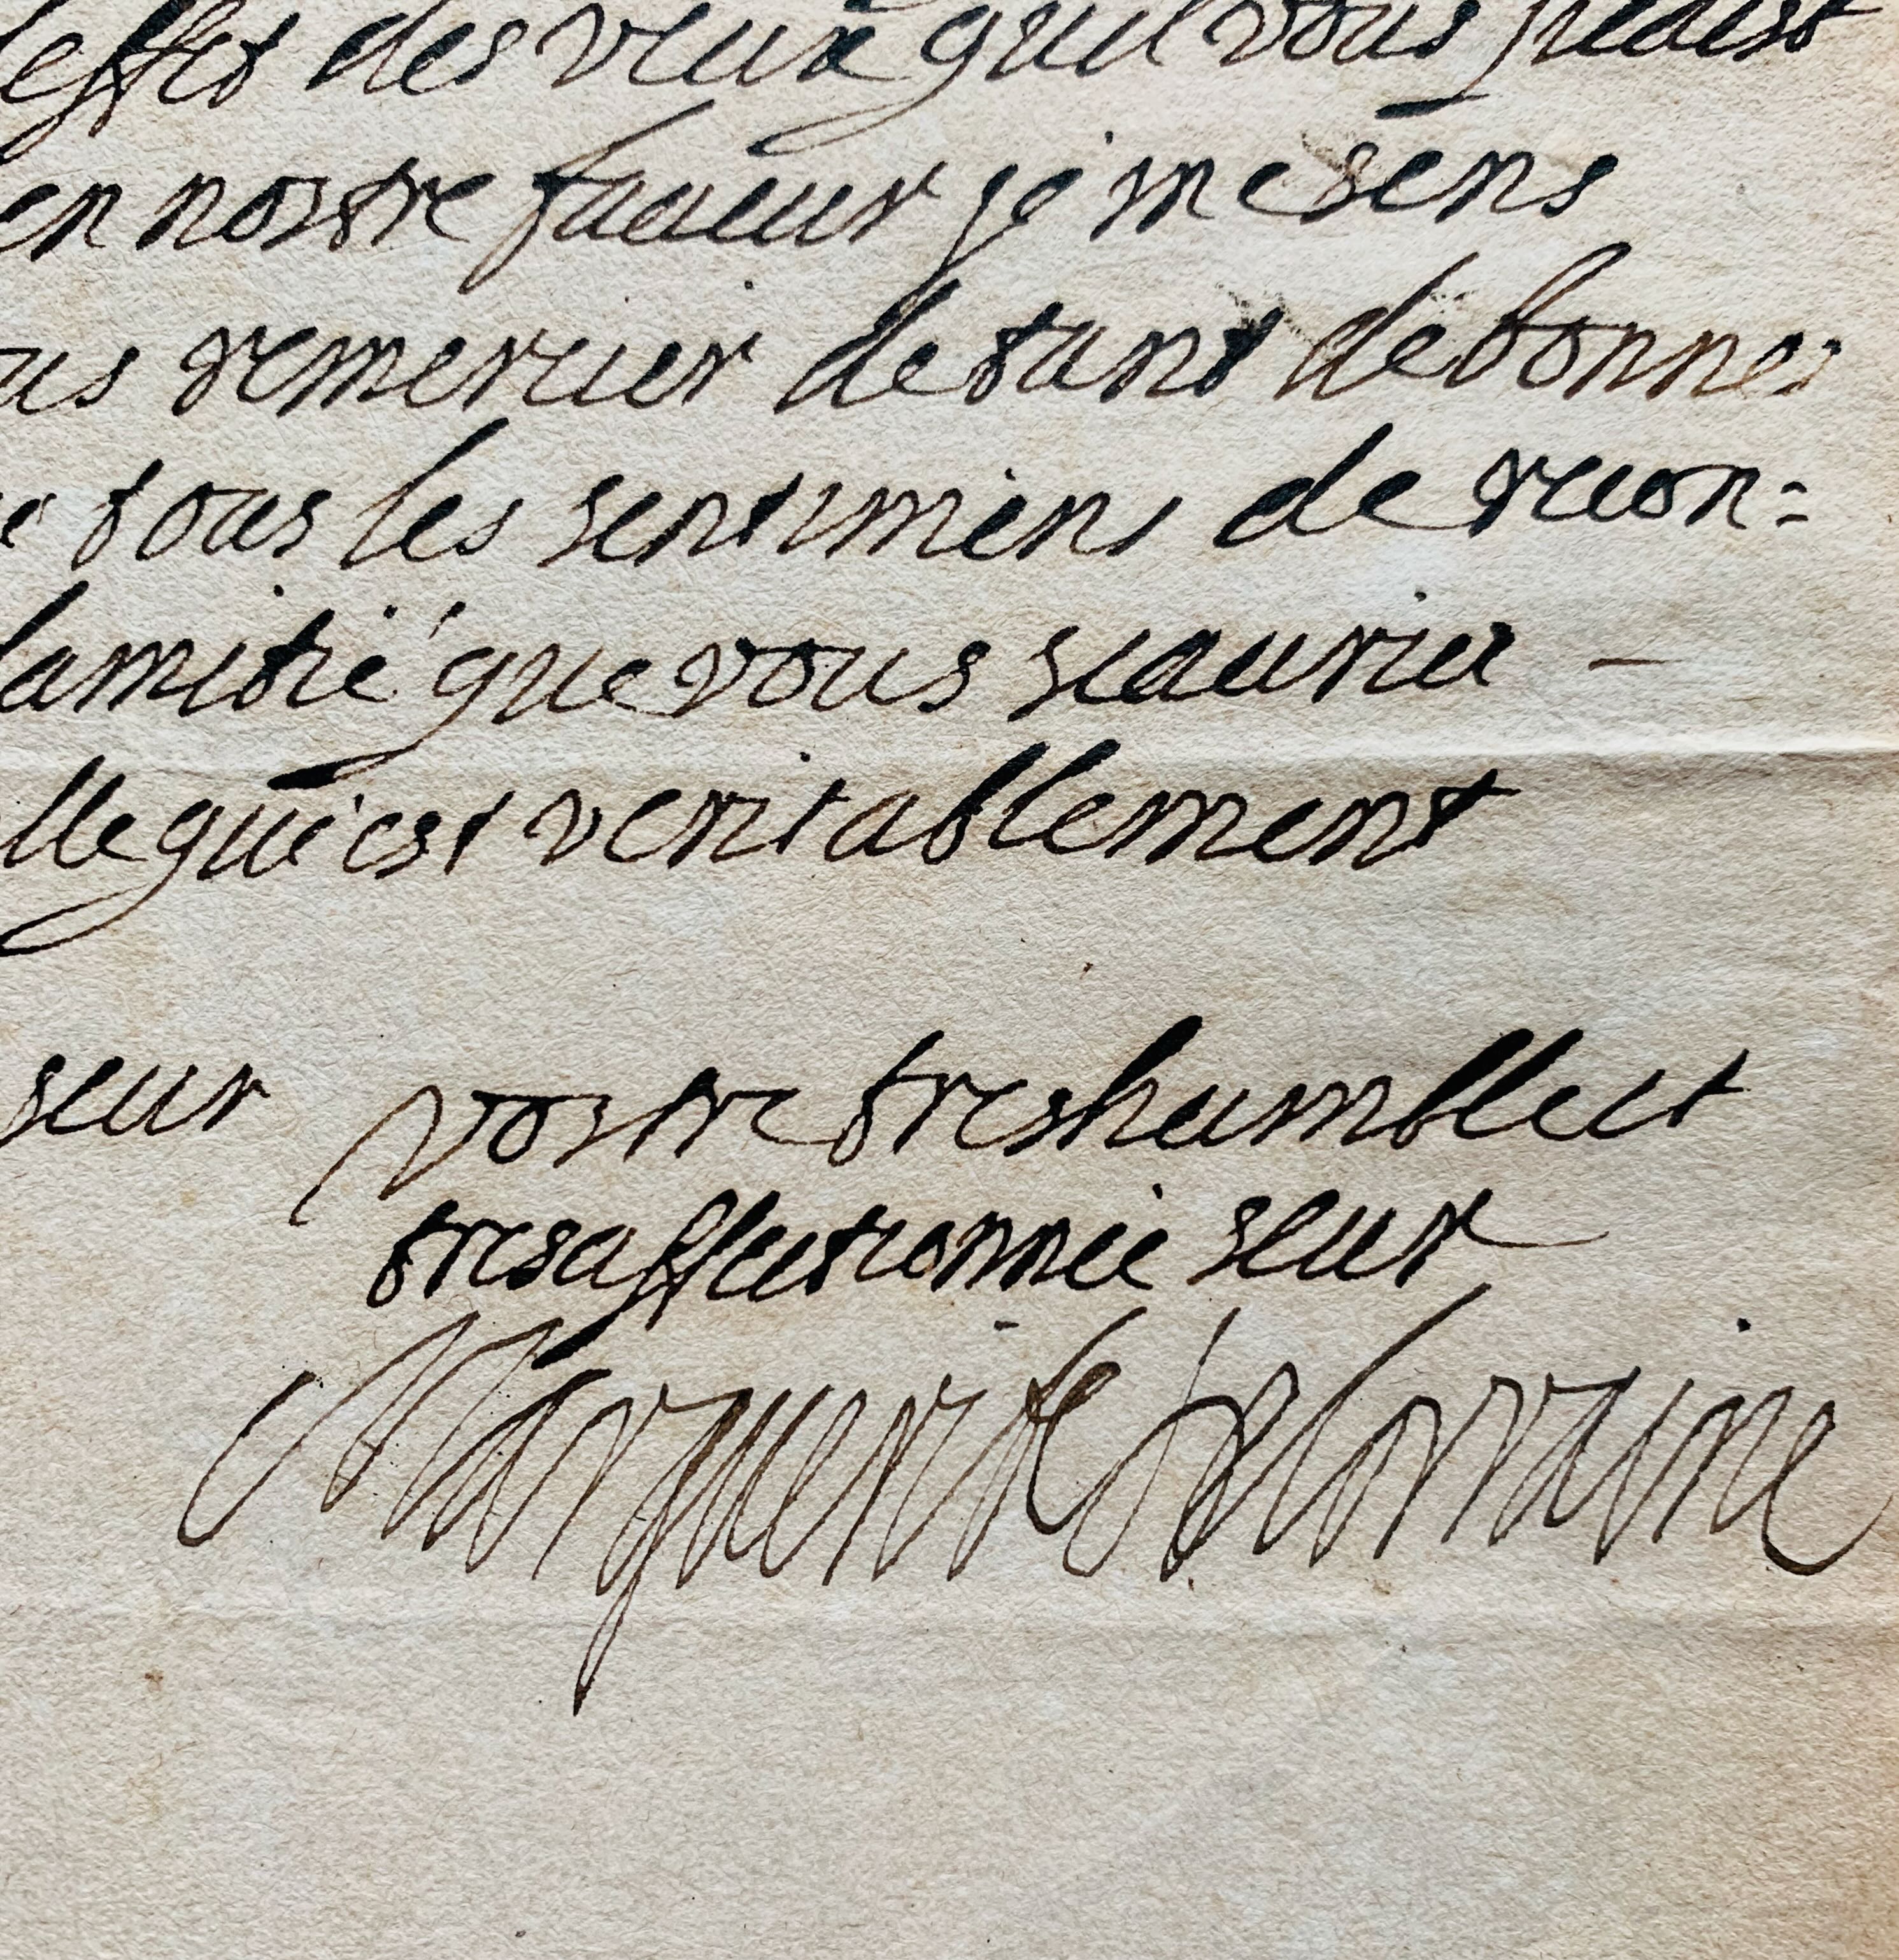 leffet des veux quil vous plaist
en nostre faueur je me sens
us remercier de tant de bonnes
tous les sentimens de recon=
lamitié que vous scauriez –
lle qui est veritablement
seur vostre treshumble et
tresaffectionnée seur
Marguerite de lorraine